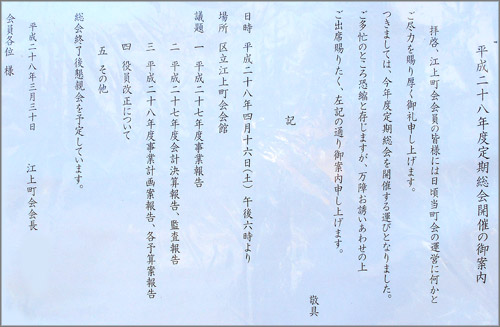 平成二十八年度定期総会開催の御案内
拝啓、江上町会会員の皆様には日頃当町会の運営に何かと
ご尽力を賜り厚く御礼申し上げます。
つきましては、今年度定期総会を開催する運びとなりました。
ご多忙のところ恐縮と存じますが、万障お誘いあわせの上
ご出席賜りたく、左記の通り御案内申し上げます。
敬具
記
日時 平成二十八年四月十六日(土)午後六時より
場所 区立江上町会会館
議題 一 平成二十七年度事業報告
二 平成二十七年度会計決算報告、監査報告
三 平成二十八年度事業計画案報告、各予算案報告
四 役員改正について
五 その他
総会終了後懇親会を予定しています。
平成二十八年三月三十日
江上町会会長
会員各位 様